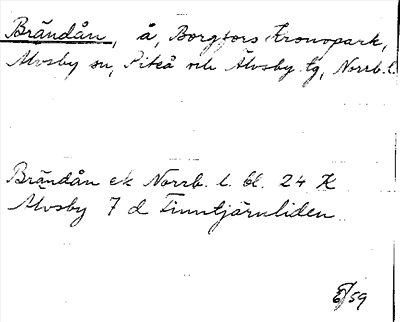 Brändån, å, Borgfors Kronopark,
Älvsby sn, Piteå och Älvsby tg, Norrb. l.
Brändån ek Norrb. l. bl. 24 K
Älvsby 7 d Finntjärnliden
/59